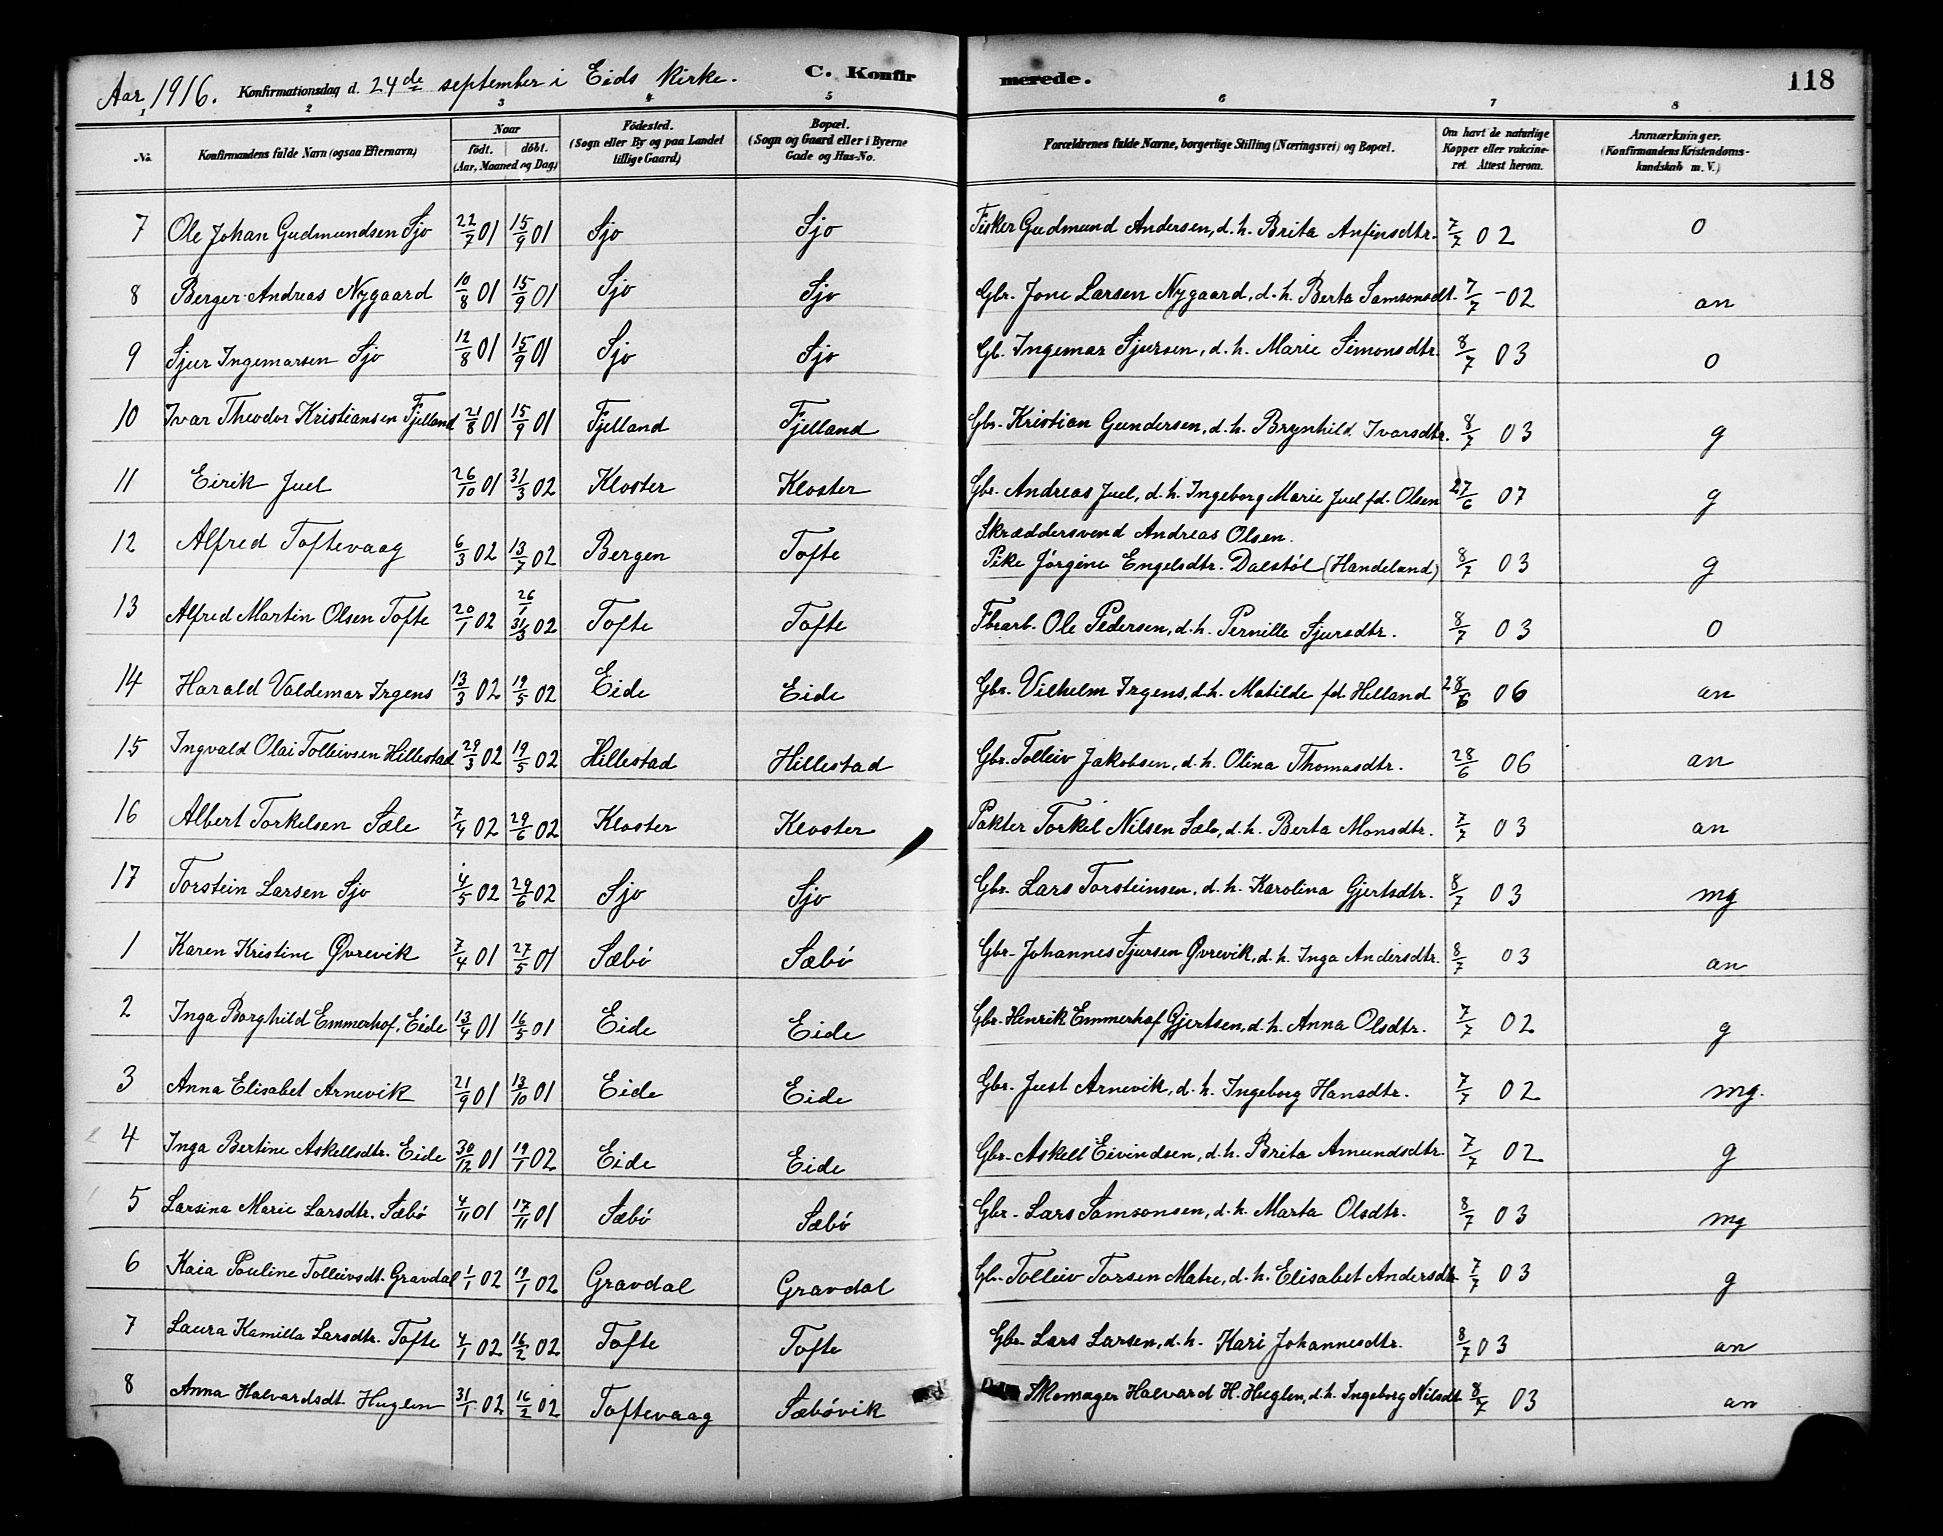 Aar 1916. Konfirmationsdag d. 24de september i Eids Kirke. C. Konfirmerede. 118
1 2 3 4 5 6 7 8
No. Konfirmandens fulde Navn (ogsaa Efternavn) Naar födt. döbt. (Aar, Maaned og Dag) Födested. (Sogn eller By og paa Landet tillige Gaard) Bopæl. (Sogn og Gaard eller i Byerne Gade og Hus-No. Forældrenes fulde Navne, borgerlige Stilling (Næringsvei) og Bopæl. Om havt de naturlige Kopper eller vakcineret. Attest herom. Anmærkninger. (Konfirmandens Kristendomskundskab m. V.)
7 Ole Johan Gudmundsen Sjo 22/7 01 15/9 01 Sjo Sjo Fisker Gudmund Andersen, d. h. Brita Anfinsdtr. 7/7 02 o
8 Berger Andreas Nygaard 10/8 01 15/9 01 Sjo Sjo Gbr. Jone Larsen Nygaard, d. h. Berta Samsonsdt. 7/7 -02 an
9 Sjur Ingemarsen Sjo 12/8 01 15/9 01 Sjo Sjo Gb. Ingemar Sjursen, d. h. Marie Simonsdtr. 8/7 03 o
10 Ivar Theodor Kristiansen Fjelland 21/8 01 15/9 01 Fjelland Fjelland Gbr. Kristian Gundersen, d. h. Brynhild Ivarsdtr. 8/7 03 g
11 Eirik Juel 26/10 01 31/3 02 Kloster Kloster Gbr. Andreas Juel, d. h. Ingeborg Marie Juel fd. Olsen 27/6 07 g
12 Alfred Toftevaag 6/3 02 13/7 02 Bergen Tofte Skræddersvend Andreas Olsen.
Pike Jörgine Engelsdtr. Dalstöl (Handeland) 8/7 03 g
13 Alfred Martin Olsen Tofte 20/1 02 26/1 31/3 02 Tofte Tofte Fbrarb. Ole Pedersen, d. h. Pernille Sjursdtr. 8/7 03 o
14 Harald Valdemar Irgens 13/3 02 19/5 02 Eide Eide Gbr. Vilhelm Irgens, d. h. Matilde fd. Helland 28/6 06 an
15 Ingvald Olai Tolleivsen Hillestad 29/3 02 19/5 02 Hillestad Hillestad Gbr. Tolleiv Jakobsen, d. h. Olina Thomasdtr. 28/6 06 an
16 Albert Torkelsen Sæle 7/4 02 29/6 02 Kloster Kloster Pakter Torkel Nilsen Sæle, d. h. Berta Monsdtr. 7/7 03 an
17 Torstein Larsen Sjo 4/5 02 29/6 02 Sjo Sjo Gbr. Lars Torsteinsen, d. h. Karolina Gjertsdtr. 8/7 03 mg
1 Karen Kristine Øvrevik 7/4 01 27/5 01 Sæbö Sæbö Gbr. Johannes Sjursen Øvrevik, d. h. Inga Andersdtr. 8/7 03 an
2 Inga Borghild Emmerhof, Eide 13/4 01 16/5 01 Eide Eide Gbr. Henrik Emmerhof Gjertsen, d. h. Anna Olsdtr. 7/7 02 g
3 Anna Elisabet Arnevik 21/9 01 13/10 01 Eide Eide Gbr. Just Arnevik, d. h. Ingeborg Hansdtr. 7/7 02 mg.
4 Inga Bertine Askellsdtr. Eide 30/12 01 19/1 02 Eide Eide Gbr. Askell Eivindsen, d. h. Brita Amundsdtr. 7/7 02 g
5 Larsina Marie Larsdtr. Sæbö 4/11 01 17/11 01 Sæbö Sæbö Gbr. Lars Samsonsen, d. h. Marta Olsdtr. 8/7 03 mg
6 Kaia Pouline Tolleivsdt. Gravdal 1/1 02 19/1 02 Gravdal Gravdal Gbr. Tolleiv Torsen Matre, d. h. Elisabet Andersdtr 7/7 03 g
7 Laura Kamilla Larsdtr. Tofte 4/1 02 16/2 02 Tofte Tofte Gbr. Lars Larsen, d. h. Kari Johannesdtr. 8/7 03 an
8 Anna Halvardsdt. Huglen 31/1 02 16/2 02 Toftevaag Sæbövik Skomager Halvard H. Huglen, d. h. Ingeborg Nilsdt 8/7 03 an